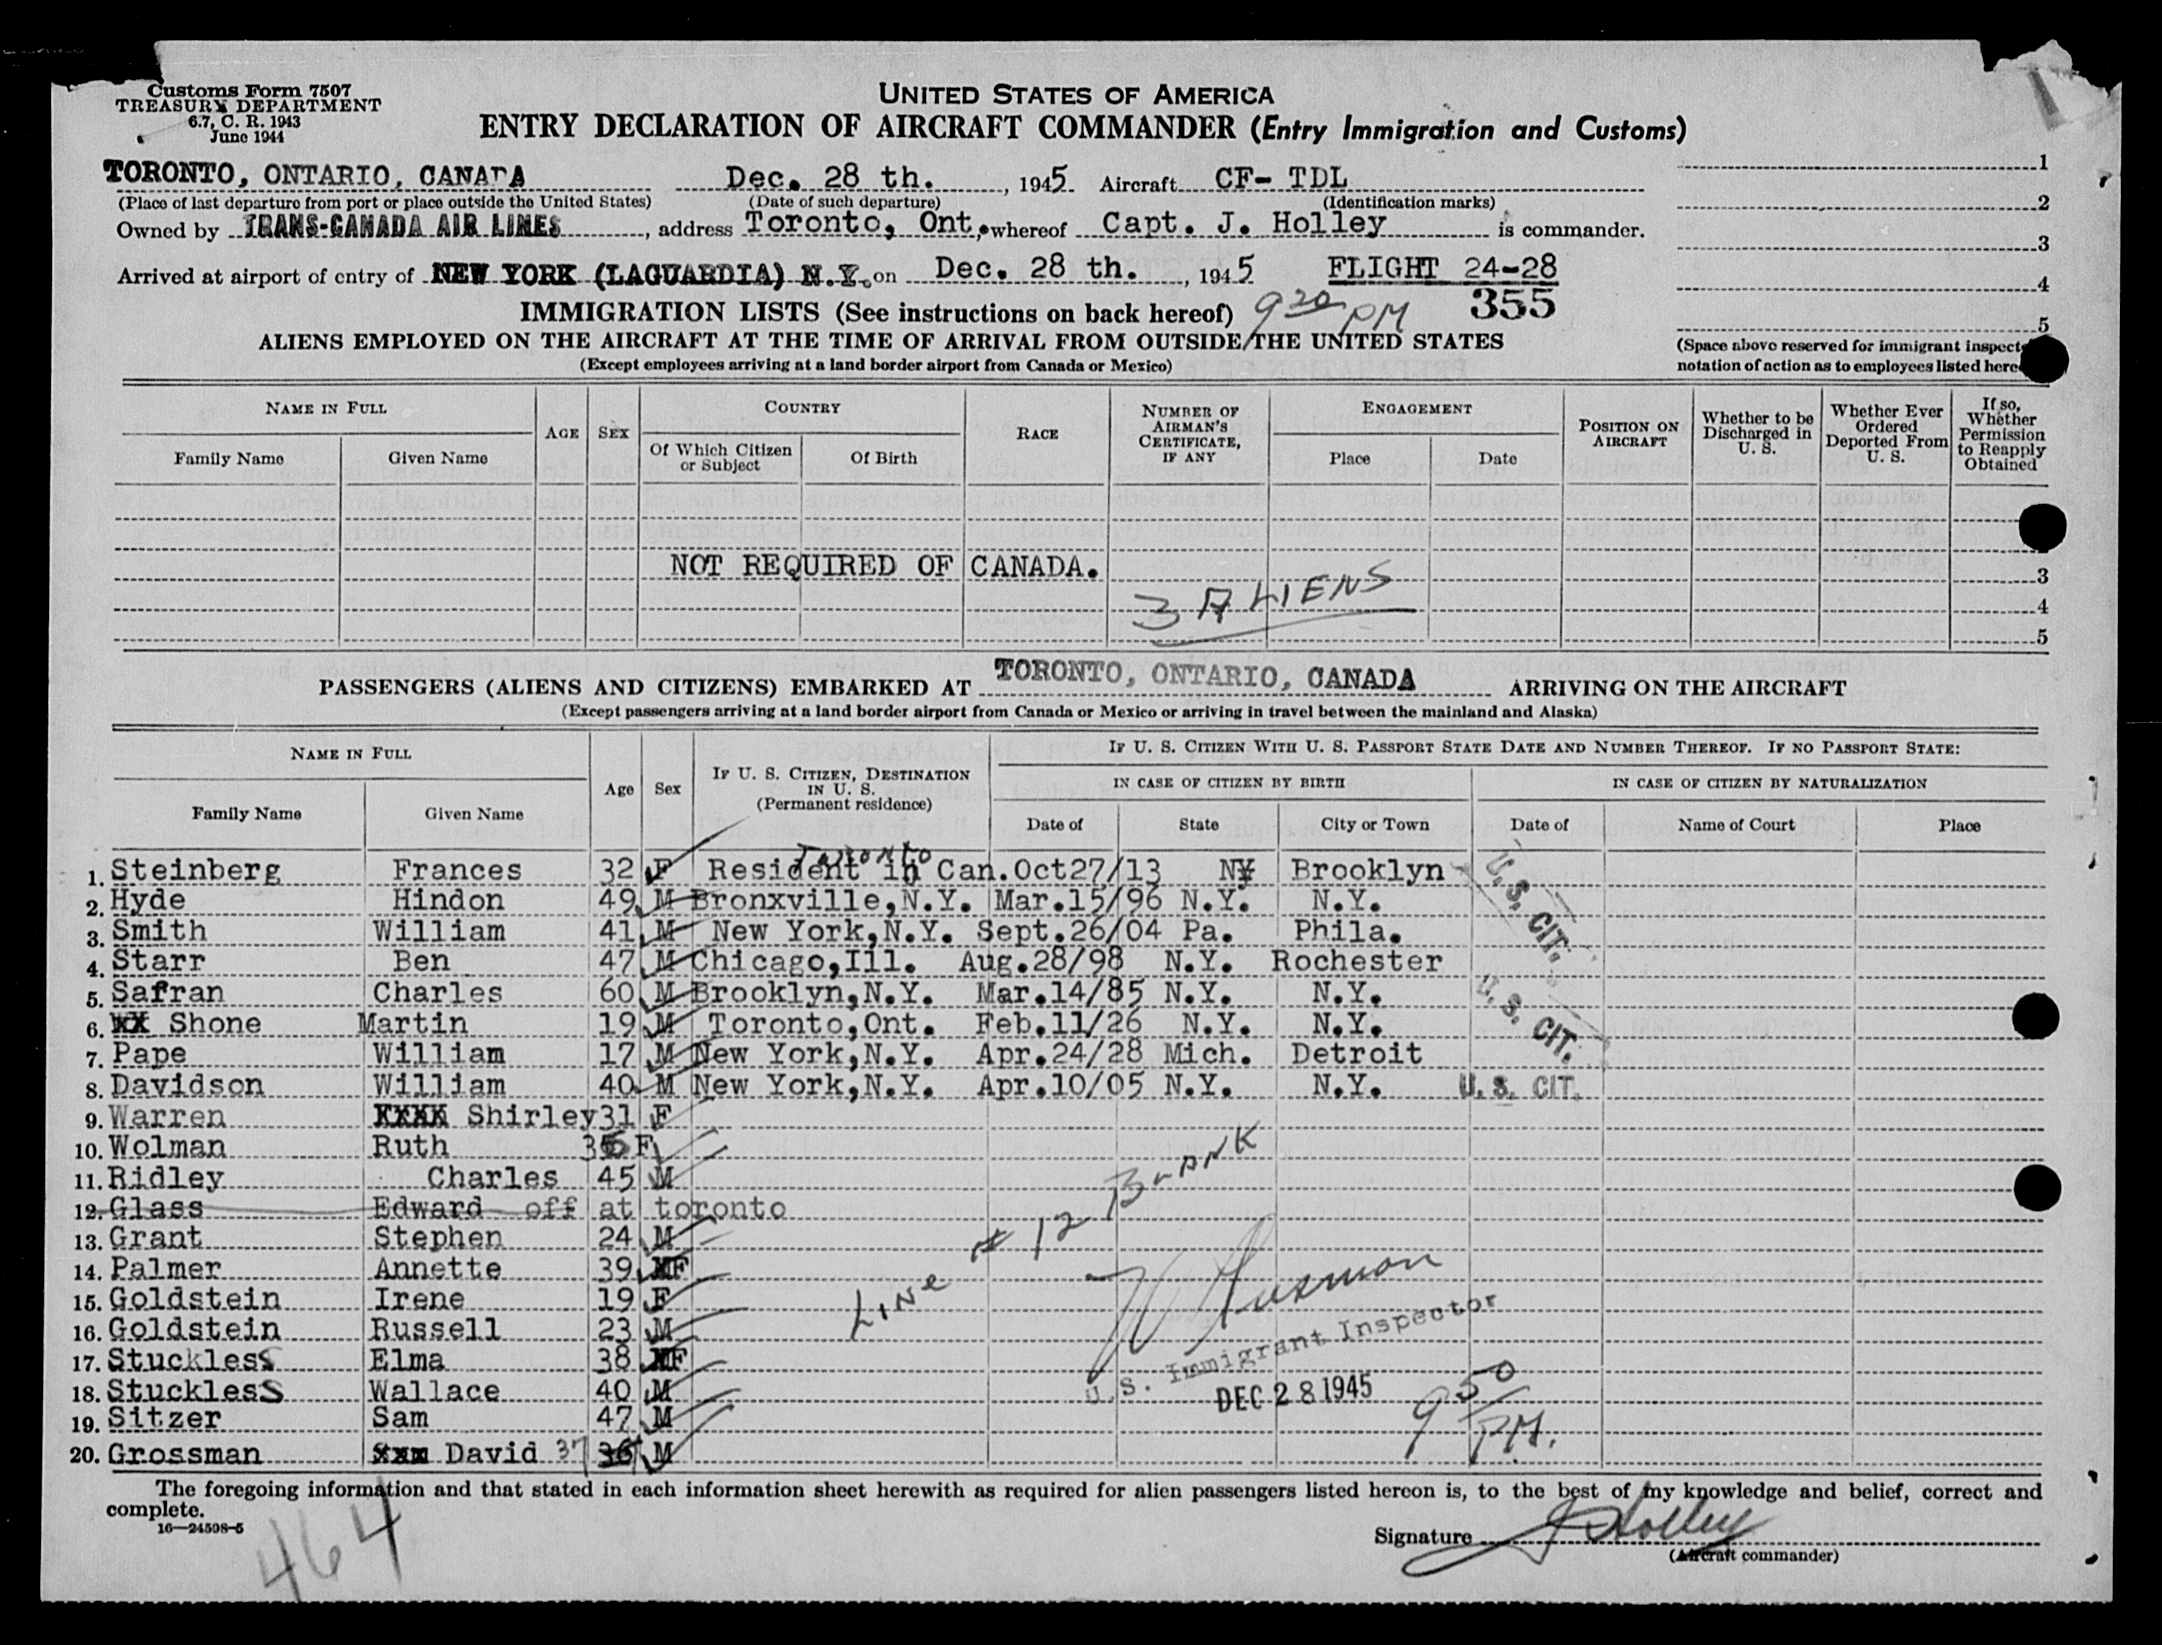 Customs Form 7507
TREASURY DEPARTMENT
6.7, C. R. 1943
June 1944
UNITED STATES OF AMERICA
ENTRY DECLARATION OF AIRCRAFT COMMANDER (Entry Immigration and Customs)
TORONTO, ONTARIO, CANADA Dec. 28 th. , 1945 Aircraft CF- TDL 1
(Place of last departure from port or place outside the United States) (Date of such departure) (Identification marks) 2
Owned by TRANS-CANADA AIR LINES , address Toronto, Ont. whereof Capt. J. Holley is commander. 3
Arrived at airport of entry of NEW YORK (LAGUARDIA) N.Y. on Dec. 28 th. , 1945 FLIGHT 24-28 4
355
IMMIGRATION LISTS (See instructions on back hereof) 9 20 PM 5
ALIENS EMPLOYED ON THE AIRCRAFT AT THE TIME OF ARRIVAL FROM OUTSIDE THE UNITED STATES
(Except employees arriving at a land border airport from Canada or Mexico)
(Space above reserved for immigrant inspect
notation of action as to employees listed here
NAME IN FULL AGE SEX COUNTRY RACE NUMBER OF AIRMAN'S CERTIFICATE, IF ANY ENGAGEMENT POSITION ON AIRCRAFT Whether to be Discharged in U. S. Whether Ever Ordered Deported From U. S. If so, Whether Permission to Reapply Obtained
Family Name Given Name Of Which Citizen or Subject Of Birth Place Date
NOT REQUIRED OF CANADA. 3
3 ALIENS 4
5
PASSENGERS (ALIENS AND CITIZENS) EMBARKED AT TORONTO, ONTARIO, CANADA ARRIVING ON THE AIRCRAFT
(Except passengers arriving at a land border airport from Canada or Mexico or arriving in travel between the mainland and Alaska)
NAME IN FULL Age Sex IF U. S. CITIZEN, DESTINATION IN U. S. (Permanent residence) IF U. S. CITIZEN WITH U. S. PASSPORT STATE DATE AND NUMBER THEREOF. IF NO PASSPORT STATE:
IN CASE OF CITIZEN BY BIRTH IN CASE OF CITIZEN BY NATURALIZATION
Family Name Given Name Date of State City or Town Date of Name of Court Place
Toronto
1. Steinberg Frances 32 F Resident in Can. Oct27/13 NY Brooklyn
2. Hyde Hindon 49 M Bronxville,N.Y. Mar.15/96 N.Y. N.Y. U. S. CIT.
3. Smith William 41 M New York,N.Y. Sept.26/04 Pa. Phila.
4. Starr Ben 47 M Chicago,Ill. Aug.28/98 N.Y. Rochester
5. Safran Charles 60 M Brooklyn,N.Y. Mar.14/85 N.Y. N.Y.
6. XX Shone Martin 19 M Toronto,Ont. Feb.11/26 N.Y. N.Y. U. S. CIT.
7. Pape William 17 M New York,N.Y. Apr.24/28 Mich. Detroit
8. Davidson William 40 M New York,N.Y. Apr.10/05 N.Y. N.Y. U. S. CIT.
9. Warren XXXX Shirley 31 F
10. Wolman Ruth F
11. Ridley Charles 45 M
12. Glass Edward off at toronto
13. Grant Stephen 24 M
14. Palmer Annette 39 F
15. Goldstein Irene 19 F
16. Goldstein Russell 23 M
17. Stuckless Elma 38 F
18. Stuckless Wallace 40 M
19. Sitzer Sam 47 M
20. Grossman xxx David 37 36 M
LINE # 12 BLANK
U. S. Immigrant Inspector
DEC 28 1945
9 50 PM.
The foregoing information and that stated in each information sheet herewith as required for alien passengers listed hereon is, to the best of my knowledge and belief, correct and
complete.
16—24598-5
464
Signature J Holley
(Aircraft commander)